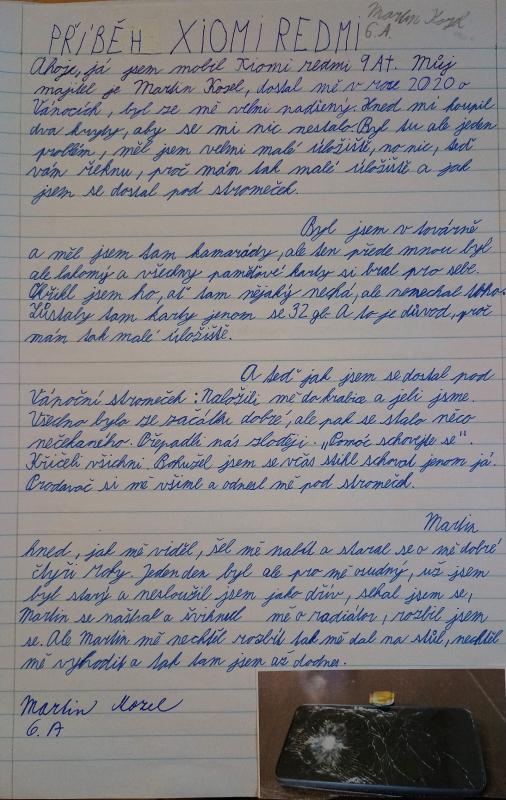 PŘÍBĚH XIOMI REDMI
Martin Kozel
6. A.
Ahoje, já jsem mobil Xiomi redmi 9 At. Můj
majitel je Martin Kozel, dostal mě v roce 2020 o
Vánocích, byl ze mě velmi nadšený. Hned mi koupil
dva kryty, aby se mi nic nestalo. Byl tu ale jeden
problém, měl jsem velmi malé úložiště, no nic, teď
vám řeknu, proč mám tak malé úložiště a jak
jsem se dostal pod stromeček.
Byl jsem v továrně
a měl jsem tam kamarády, ale ten přede mnou byl
ale lakomý a všechny paměťové karty si bral pro sebe.
Okřikl jsem ho, ať tam nějaký nechá, ale nenechal toho.
Zůstaly tam karty jenom se 32 gb. A to je důvod, proč
mám tak malé úložiště.
A teď jak jsem se dostal pod
Vánoční stromeček: Naložili mě do krabice a jeli jsme.
Všechno bylo ze začátku dobré, ale pak se stalo něco
nečekaného. Přepadli nás zloději. „Pomóc schovejte se“.
Křičeli všichni. Bohužel jsem se včas stihl schovat jenom já.
Prodavač si mě všiml a odnesl mě pod stromeček.
Martin
hned, jak mě viděl, šel mě nabít a staral se o mě dobré
čtyři roky. Jeden den byl ale pro mě osudný, už jsem
byl starý a nesloužil jsem jako dřív, sekal jsem se,
Martin se naštval a švihnul mě o radiátor, rozbil jsem
se. Ale Martin mě nechtěl rozbít tak mě dal na stůl, nechtěl
mě vyhodit a tak tam jsem až dodnes.
Martin Kozel
6. A